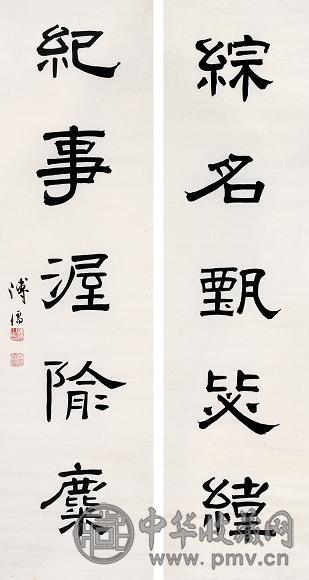 綜名甄毖緯
紀事渥隃麋
溥儒
中华收藏网
www.pmv.cn